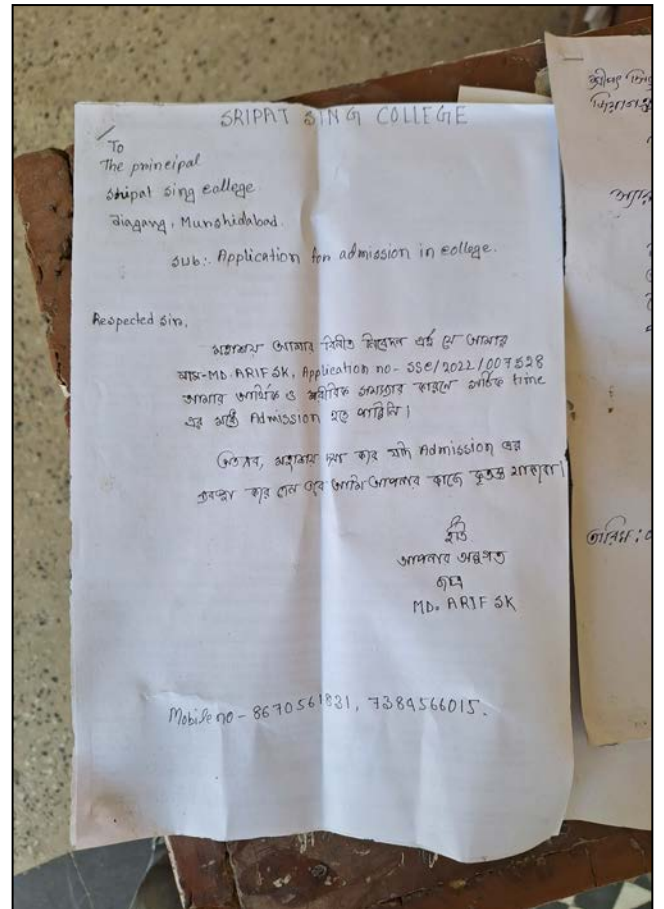 SRIPAT SING COLLEGE
To
The principal
Sripat Sing college
Jiagang, Munshidabad.
Sub:- Application for admission in college.
Respected Sir,
মহাশয় আমার বিনীত নিবেদন এই যে আমার
নাম-MD. ARIF SK, Application no- SSC/2022/007528
আমার আর্থিক ও শারীরিক সমস্যার কারনে সঠিক time
এর মধ্যে Admission হতে পারিনি।
অতএব, মহাশয় দয়া করে যদি Admission এর
ব্যবস্থা করে দেন তবে আমি আপনার কাছে কৃতজ্ঞ থাকবো।
ইতি
আপনার অনুগত
ছাত্র
MD. ARIF SK
Mobile no - 8670561821, 7384566015.
শ্রীপৎ
তারিখ: